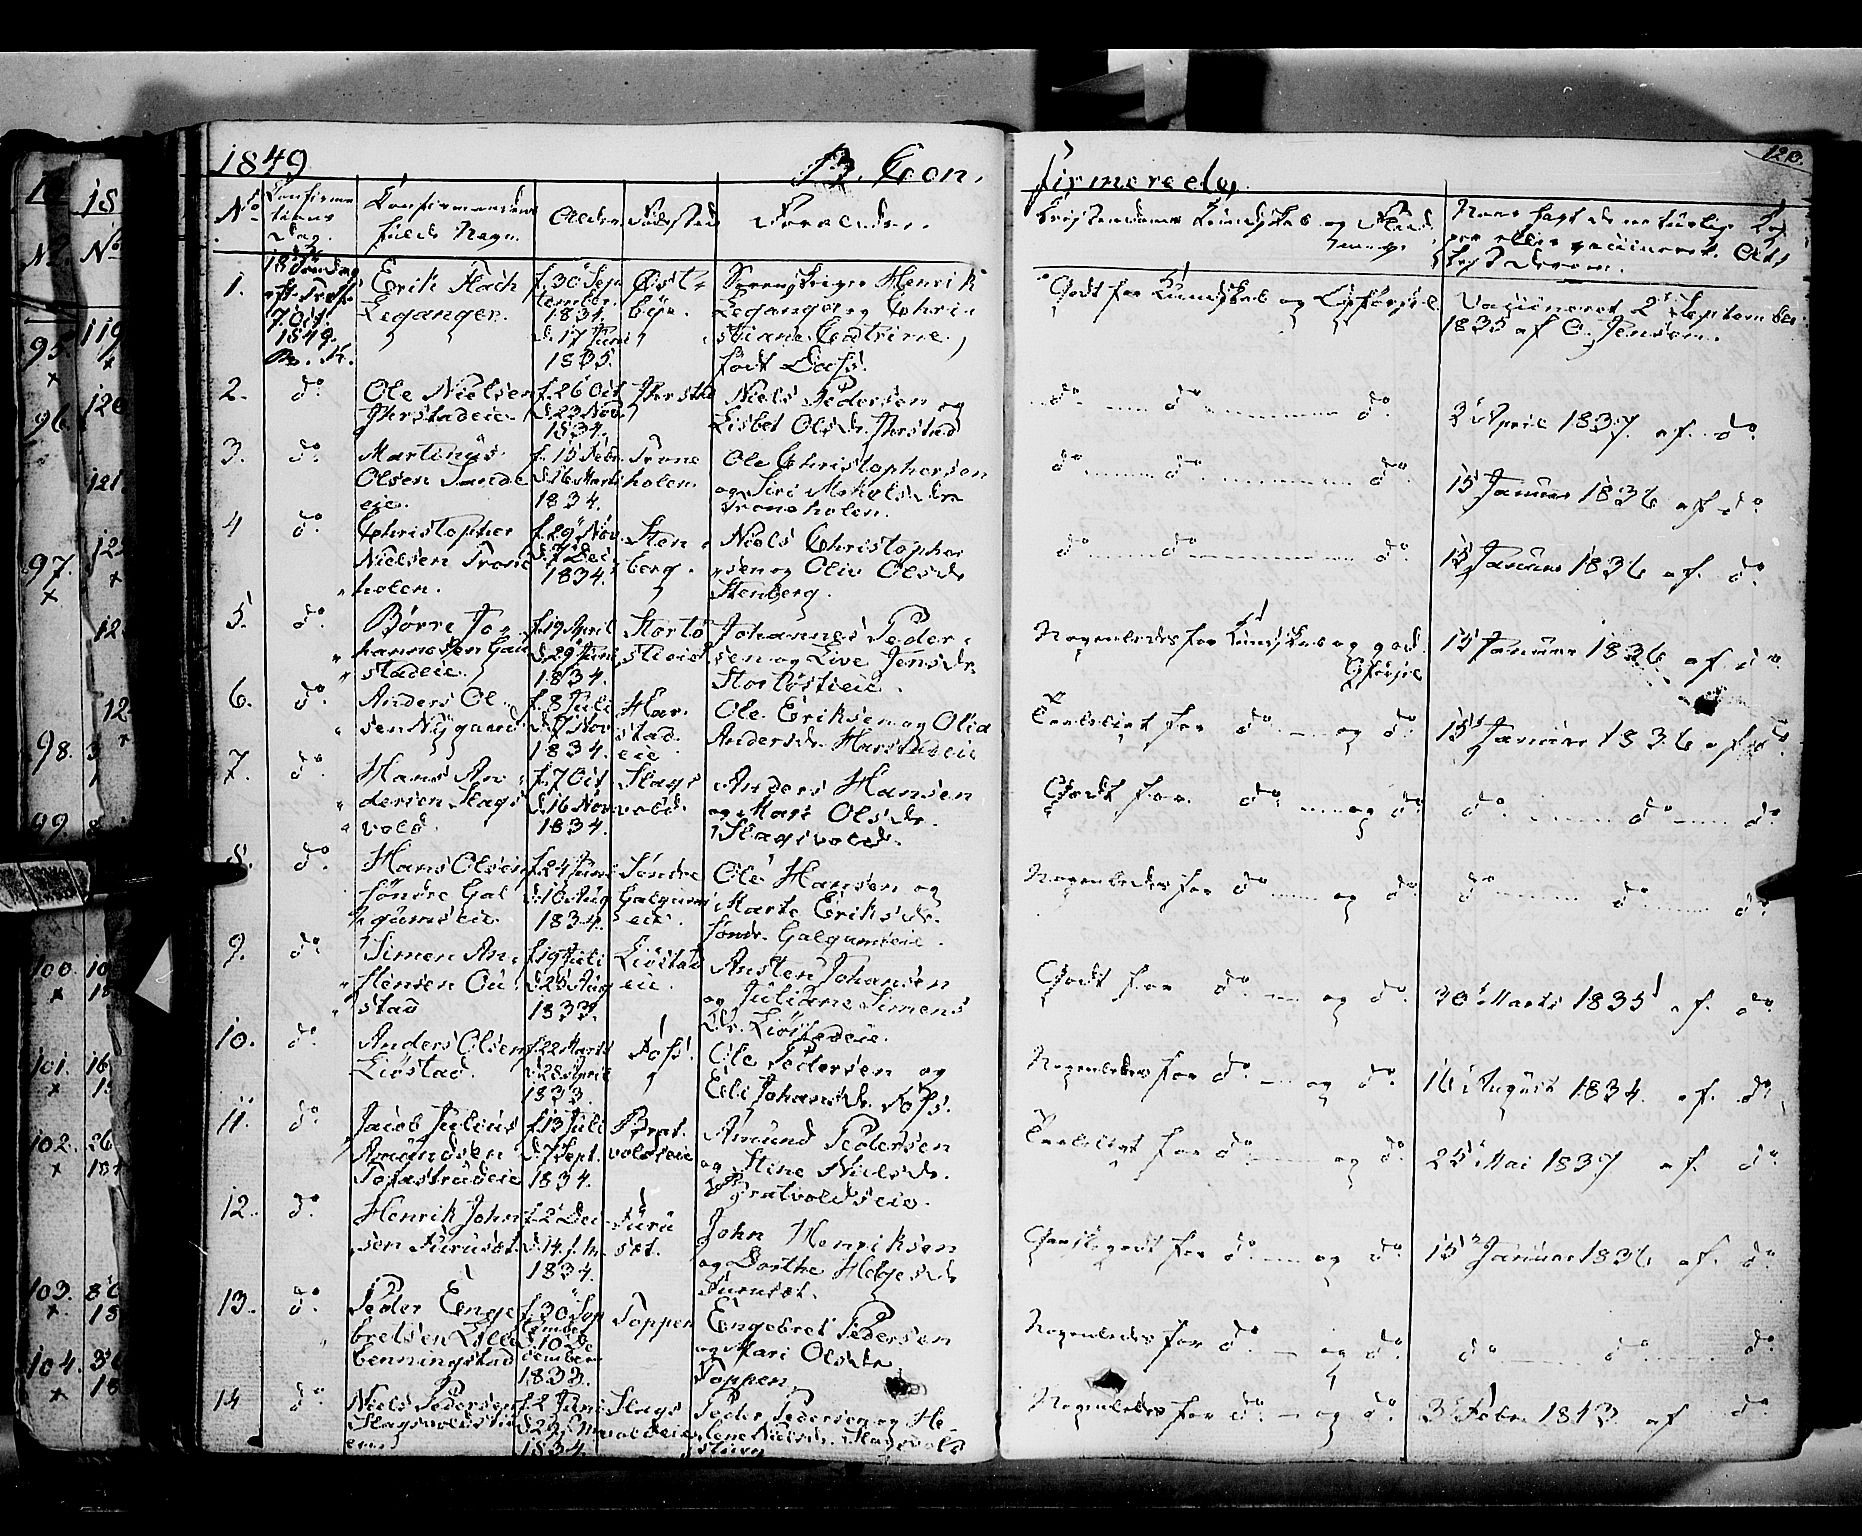 1849
B. Con,
firmerede,
120.
No
Confirma
tions
Dag.
Confirmandens
fulde Navn.
Alder.
Fødested
Forældre.
Christendoms Kundskab og Flid
Naar havt de naturlige Kop
per eller vaccineret. Att
1.
18 Søndag
eft. Tref.
7 Oct.
1849.
Erik Hach
Leganger.
f. 30 Sep
tember
1834.
d. 17 Juni
1835
Østbye.
Henrik
Leganger og Chri
stiane Cathrine
født Dass.
Godt for Kundskab og Opførsel
Vaccineret 2 September
1835 af C. Jensen.
2.
do
Ole Nielsen
Jherstadeie.
f. 26 Oct
d. 23 Nov.
1834.
Jhersta
Niels Pedersen og
Lisbet Olsdr. Jherstad
do do do
3 April 1837. af. do
3.
do
Martinus
Olsen Sande
eie.
f. 15 Febr.
d. 16 Marts
1834.
Trone
holen.
Ole Christophersen
og Siri Mikelsdr
Troneholen.
do do do
15 Januar 1836 af do
4
do
Christopher
Nielsen Trone
holen.
f. 29 Nov.
d. 7 Dec
1834.
Sten
berg.
Niels Christopher
sen og Oliv Olsdr
Stenberg.
do do do
15 Januar 1836 af. do
5.
do
Børre Jo
hannesen Gau
stadeie.
f. 19 April
d. 29 Juni
1834.
Stortø
stieie.
Johannes Peder
sen og Live Jensdr
Stortøstieie.
Nogenledes for Kundskab og god
Opførsel
15 Januar 1836 af do
6.
do
Anders Ol
sen Nygaard
f. 8 Juli
d. 7 Nov
1834.
Har
stad
eie
Ole Eriksen og Olia
Andersdr. Harstadeie
Taaleligt for do og do
15 Januar 1836 af do
7.
do
Hans An
dersen Slags
vold.
f. 7 Oct
d. 16 Nov
1834.
Slags
vold.
Anders Hansen
og Mari Olsdr.
Slagsvold.
Godt for do og do
do do do
8.
do
Hans Olsen
Søndre Gal
gumseie.
f. 24 Juni
d. 10 Aug
1834.
Søndre
Galgums
eie.
Ole Hansen og
Marte Eriksdr.
Søndr. Galgumseie.
Nogenledes for do og do
do do do
9.
do
Simen An
stensen Ou
stad
f. 19 Juli
d. 25 Aug
1833.
Liøstad
eie.
Ansten Johansen
og Juliane Simens
dr. Liøstadeie.
Godt for do og do
30 Marts 1835 af. do
10.
do
Anders Olsen
Liøstad.
f. 22 Marts
d. 28 April
1833.
Foss.
Ole Pedersen og
Eli Johansdr. Foss.
Nogenledes for do og do
16 August 1834. af. do
11.
do
Jacob Julius
Amundsen
Tofastrudeie
f. 13 Juli
d. 7 Sept.
1834.
Brat
voldseie
Amund Pedersen
og Stine Nielsdr.
Bratvoldseie.
Taaleligt for do og do
25 Mai 1837 af. do
12.
do
Henrik John
sen Furuset.
f. 2 Dec
d. 14 s. M.
1834.
Furu
set.
John Henriksen
og Dorthe Helgesdr
Furuset.
Ganske godt for do og do
15 Januar 1836 af. do
13.
do
Peder Enge
bretsen Lille
benningstad
f. 30 Sep
tember
d. 10 De
cember
1833.
Toppen
Engebret Pedersen
og Mari Olsdr
Toppen.
Nogenledes for do og do
do do do
14
do
Niels Pedersen
f. 2 Juni
1834.
Slags
voldeie
Peder Pedersen og He
lene Nielsdr. Slagsvold
Nogenledes for do og do
3 Febr. 1843 af do
95.
x
96.
97.
x
98.
99.
100.
x
101.
x
102.
x
103.
x
104.
x
119
x
120
121.